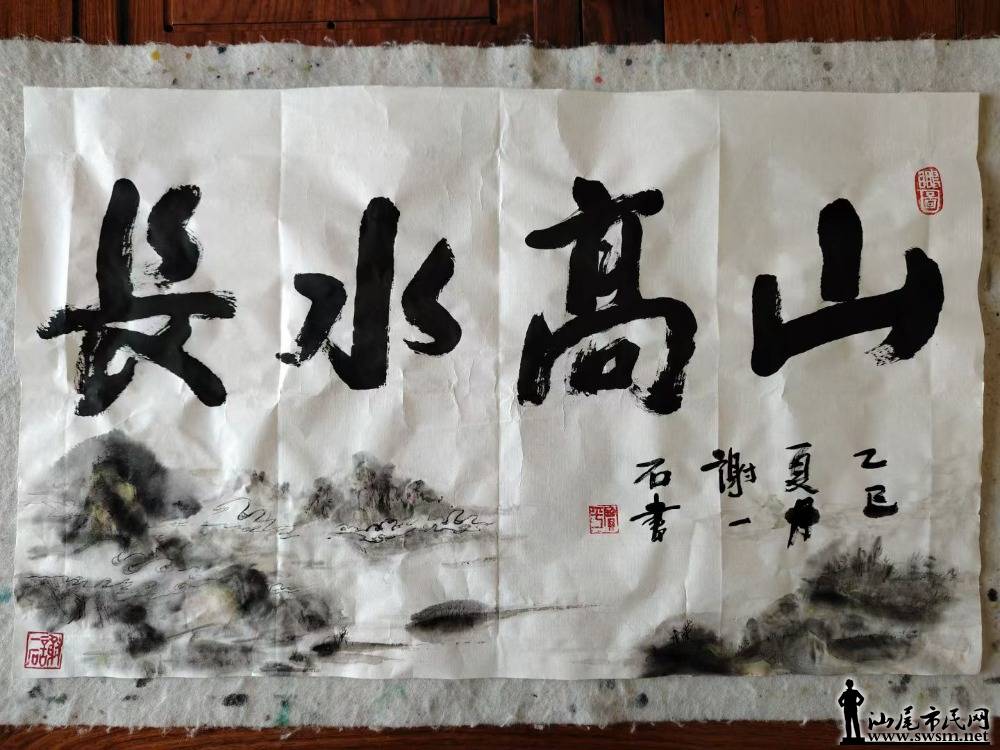 山高水长
乙巳
夏月
謝一
石書
謝一石
汕尾市民网
www.swsm.net